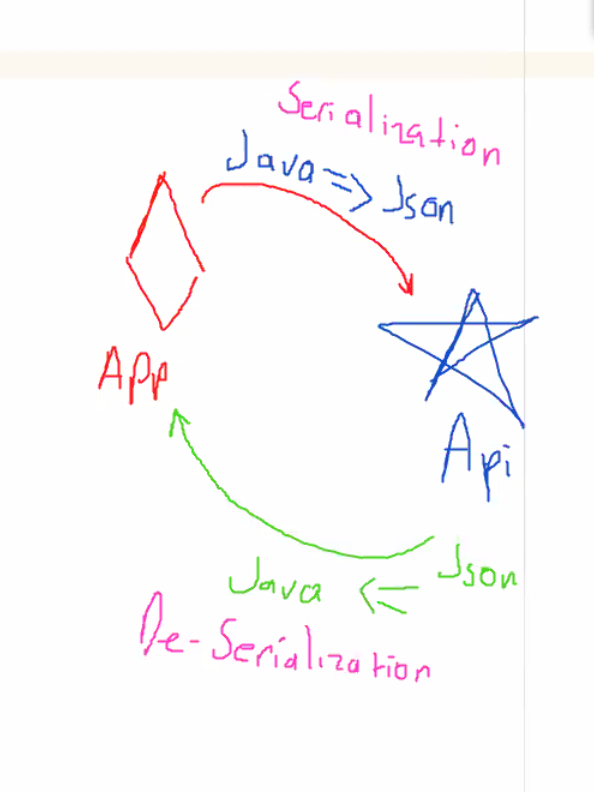 Serialization
Java => Json
App
Api
Java <= Json
De-Serialization